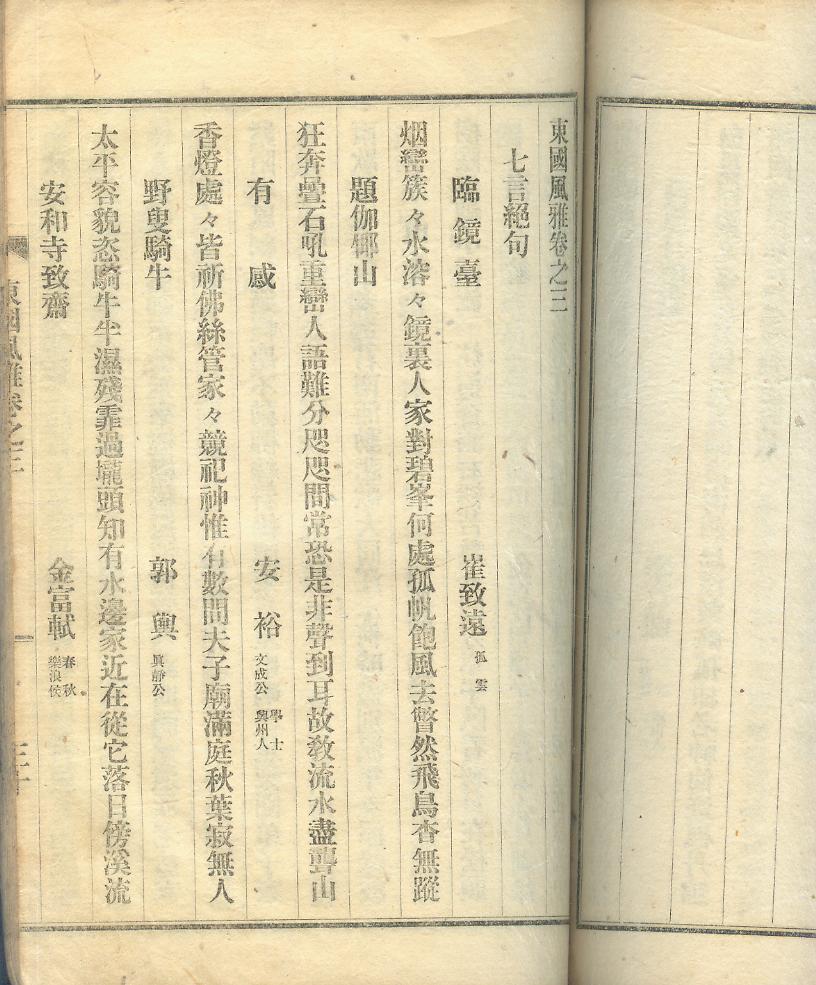 東國風雅卷之三
七言絕句
臨鏡臺 崔致遠 孤雲
烟巒簇々水溶々鏡裏人家對碧峯何處孤帆飽風去瞥然飛鳥杳無蹤
題伽倻山
狂奔疊石吼重巒人語難分咫尺間常恐是非聲到耳故敎流水盡聾山
有感 安裕 文成公 學士 興州人
香燈處々皆祈佛絲管家々競祀神惟有數間夫子廟滿庭秋葉寂無人
野叟騎牛 郭輿 眞靜公
太平容貌恣騎牛半濕殘霏過壠頭知有水邊家近在從它落日傍溪流
安和寺致齋 金富軾 春秋 樂浪侯
東國風雅卷之三